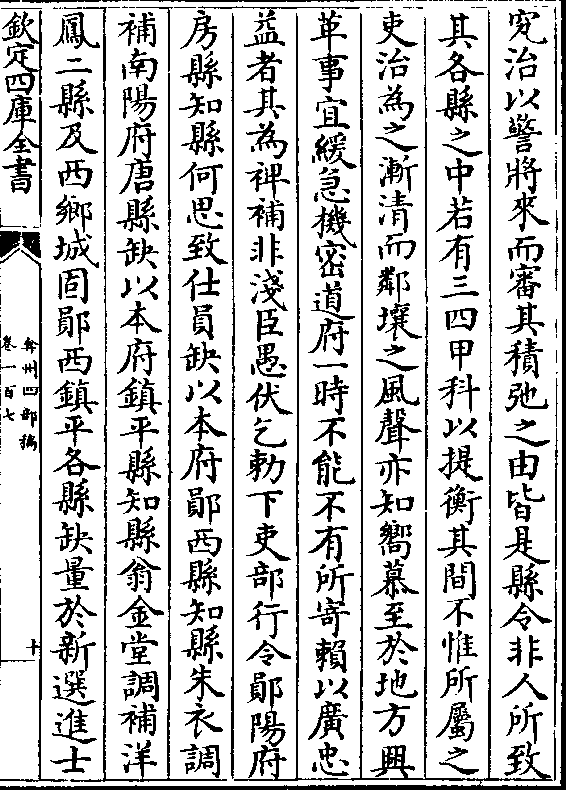 究治以警將來而審其積弛之由皆是縣令非人所致
其各縣之中若有三四甲科以提衡其間不惟所屬之
吏治為之漸清而鄰壤之風聲亦知嚮慕至於地方興
革事宜緩急機密道府一時不能不有所寄賴以廣忠
益者其為裨補非淺臣愚伏乞勅下吏部行令鄖陽府
房縣知縣何思致仕員缺以本府鄖西縣知縣朱衣調
補南陽府唐縣缺以本府鎮平縣知縣翁金堂調補洋
鳳二縣及西鄉城固鄖西鎮平各縣缺量於新選進士
欽定四庫全書
弇州四部稿
卷一百七
十